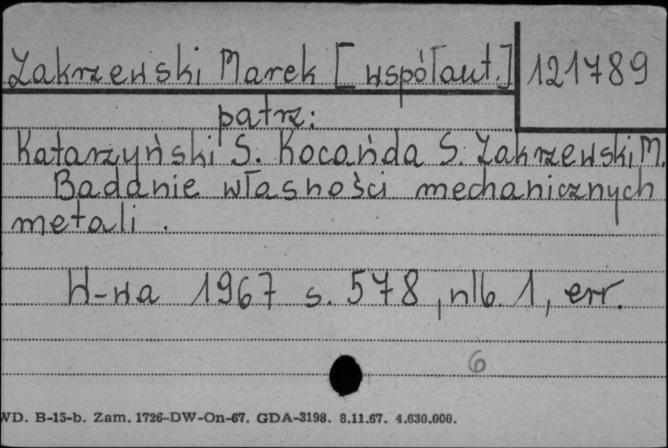 Zakrzewski Marek [współaut.] 121789
patrz:
Katarzyński S. Kocańda S. Zakrzewski, M.
Badanie własności mechanicznych
metali.
W-wa 1967 s. 578, nlb. 1, err.
6
WD. B-15-b. Zam. 1726-DW-On-67. GDA-3198. 8.11.67. 4.630.000.